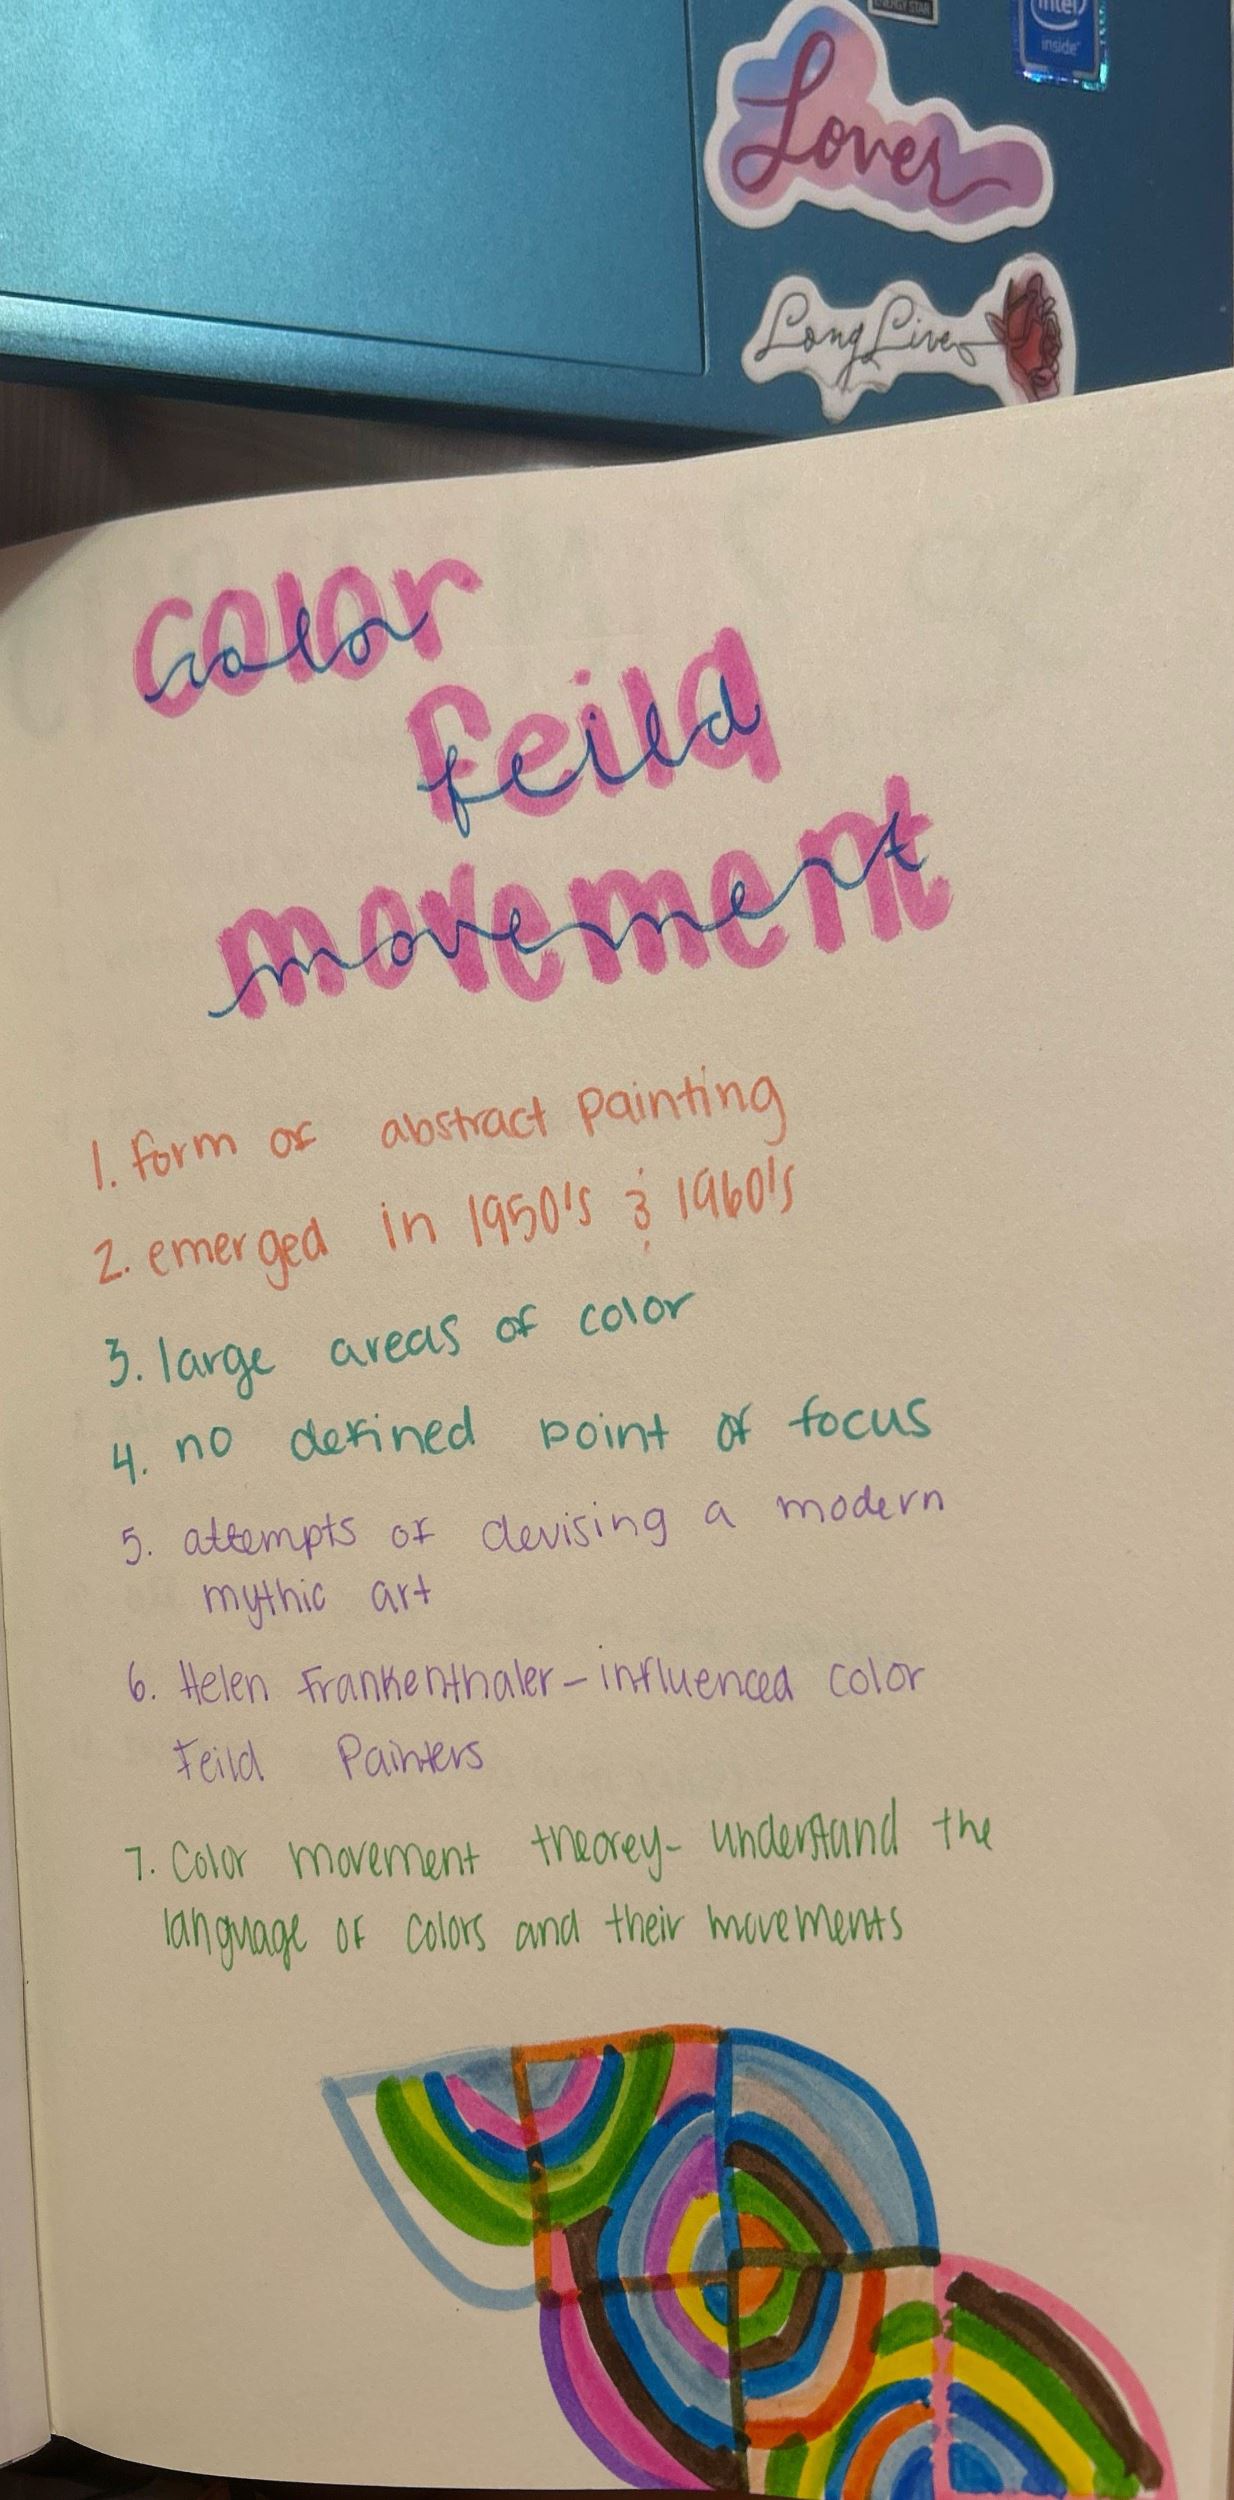 ENERGY STAR
intel
inside
Lover
Long Live
color
color
feild
feild
movement
movement
1. form of abstract painting
2. emerged in 1950's & 1960's
3. large areas of color
4. no defined point of focus
5. attempts of devising a modern
mythic art
6. Helen Frankenthaler - influenced color
Feild Painters
7. Color movement theorey - understand the
language of colors and their movements